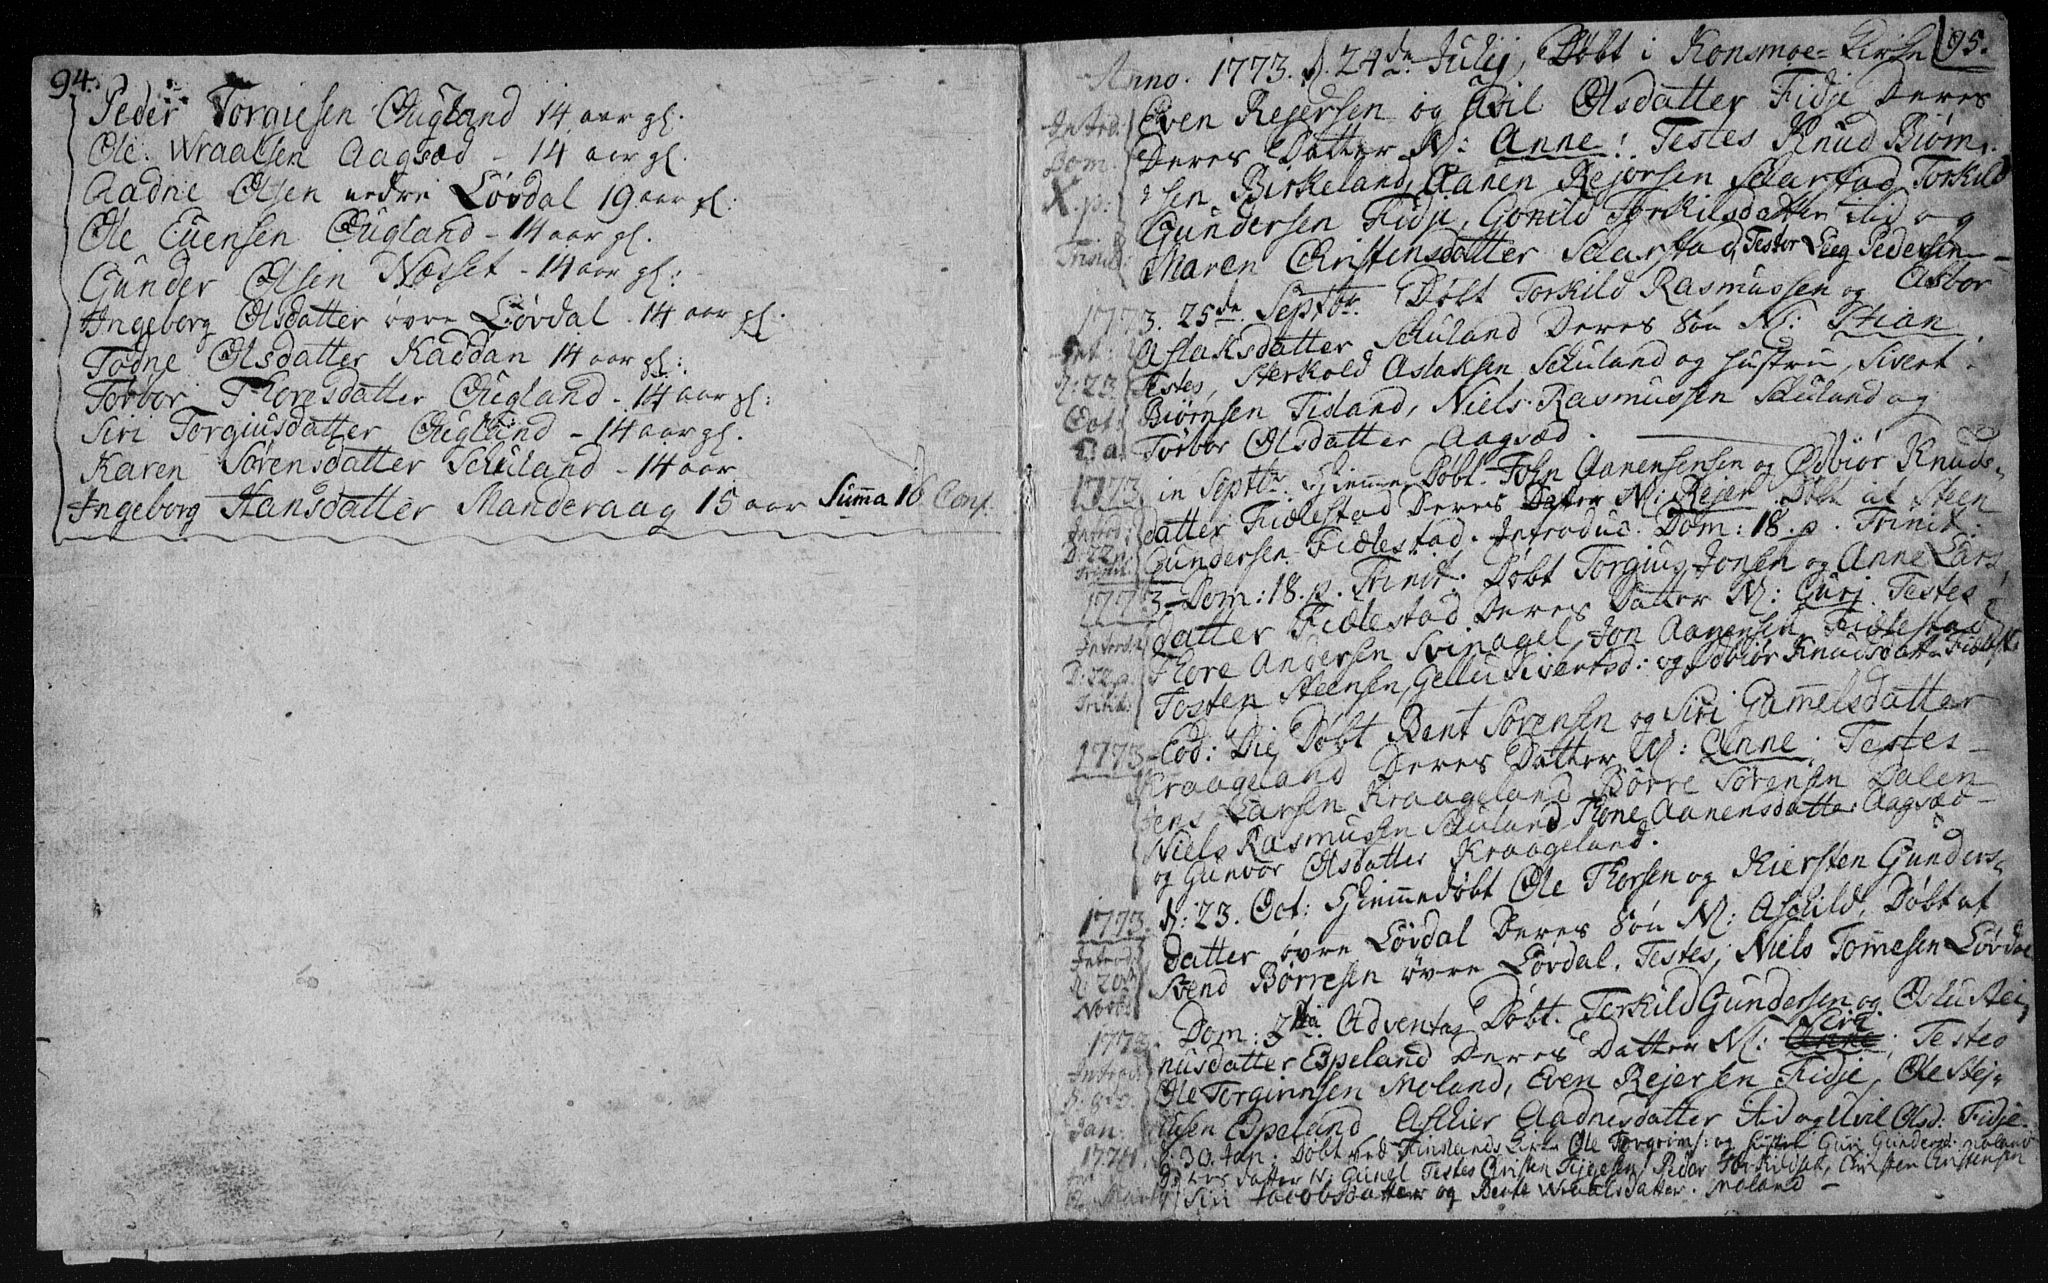 94.
Peder Torgiesen Øugland 14 aar gl.
Ole Wraalsen Aagsæd - 14 aar gl.
Aadne Olsen nedre Løvdal 19 aar gl:
Ole Evensen Øugland - 14 aar gl.
Gunder Olsen Næsset - 14 aar gl:
Ingeborg Olsdatter øvre Løvdal - 14 aar gl.
Todne Olsdatter Kaddan 14 aar gl:
Torbor Thoresdatter Øugland - 14 aar gl:
Siri Torgiusdatter Øugland - 14 aar gl.
Karen Sørensdatter Schuland - 14 aar
Ingeborg Hansdatter Manderaag 15 aar Summa 16 Conf.
95.
Anno. 1773. d. 24de Julij, Døbt i Konsmoe Kirke
Introd: Even Rejersen og Avil Olsdatter Fidje Deres
Dom. Deres Datter N: Anne! Testes Knud Biørn-
X. p: sen Birkeland, Aanen Rejersen Saarstad Torkild
Gundersen Fidje, Gonild Torkilsdatter Stid og
Trinit: Maren Christensdatter Saarstad, Testor Leeg Pedersen
1773. 25de Septbr. Døbt Torkild Rasmussen og Asbor
Int: Aslaksdatter Schuland Deres Søn N: Stian
d: 23 Testes, Sterkold Aslaksen Schuland og Hustru, Sivert
Oct: Biørnsen Fisland, Niels Rasmussen Schuland og
Torbor Olsdatter Aagsæd.
1773 in Septbr: Hiemme Døbt John Aanensensen og Ødbiør Knuds-
Introd: datter Fidlestad Deres Datter N: Rejer Døbt af Steen
D: 22 p. Gundersen Fidlestad. Introduc. Dom: 18. p. Trinit.
Trinit.
1773 Dom: 18. p. Trinit: Døbt Torgius Jonsen og Anne Lars
datter Fidlestad Deres Datter N: Gurj Testes
Introd: Thore Andersen Svinagel, Jon Aanensen Fidlestad
D: 22 p. Tosten Steensen, Gellu Sivertsd: og Ødbiør Knudsdatt. Fidlest.
Trinit:
1773 Eod: Die Døbt Bent Sørensen og Siri Gamelsdatter
Kraageland Deres Datter N: Anne. Testes
Jens Larsen Kraageland Børre Sørensen Dalen
Niels Rasmussen Schuland Thone Aanensdatter Aagsæd
og Gunvor Olsdatter Kraageland.
1773. d: 23. Oct: Hiemmedøbt Ole Thorsen og Kiersten Gunders-
Introd: datter øvre Løvdal Deres Søn N: Aschild, Døbt af
d: 20de Svend Børresen øvre Løvdal. Testes, Niels Tomesen Løvdal
Novb:
1773. Dom: 3tia Advent. Døbt. Terkild Gundersen og Aslu Stei-
Introd: nusdatter Espeland Deres Datter N: Siri; Testes
Ole Torgrimsen Moland, Even Rejersen Fidje, Ole Stej-
Jan: nusen Espeland Aschier Aadnesdatter Stid og Avil Olsd: Fidje.
1774. d: 30. Jan: Døbt ved Finslands Kirke Ole Torgrims: og Hustru Guri Gundersd: Moland
Deres datter N: Gunel Testes Christen Tejgesen, Peder Torkildsen, Christen Christensen
12 Martj Siri Jacobsdatter og Bente Wraalsdatter. Moland -